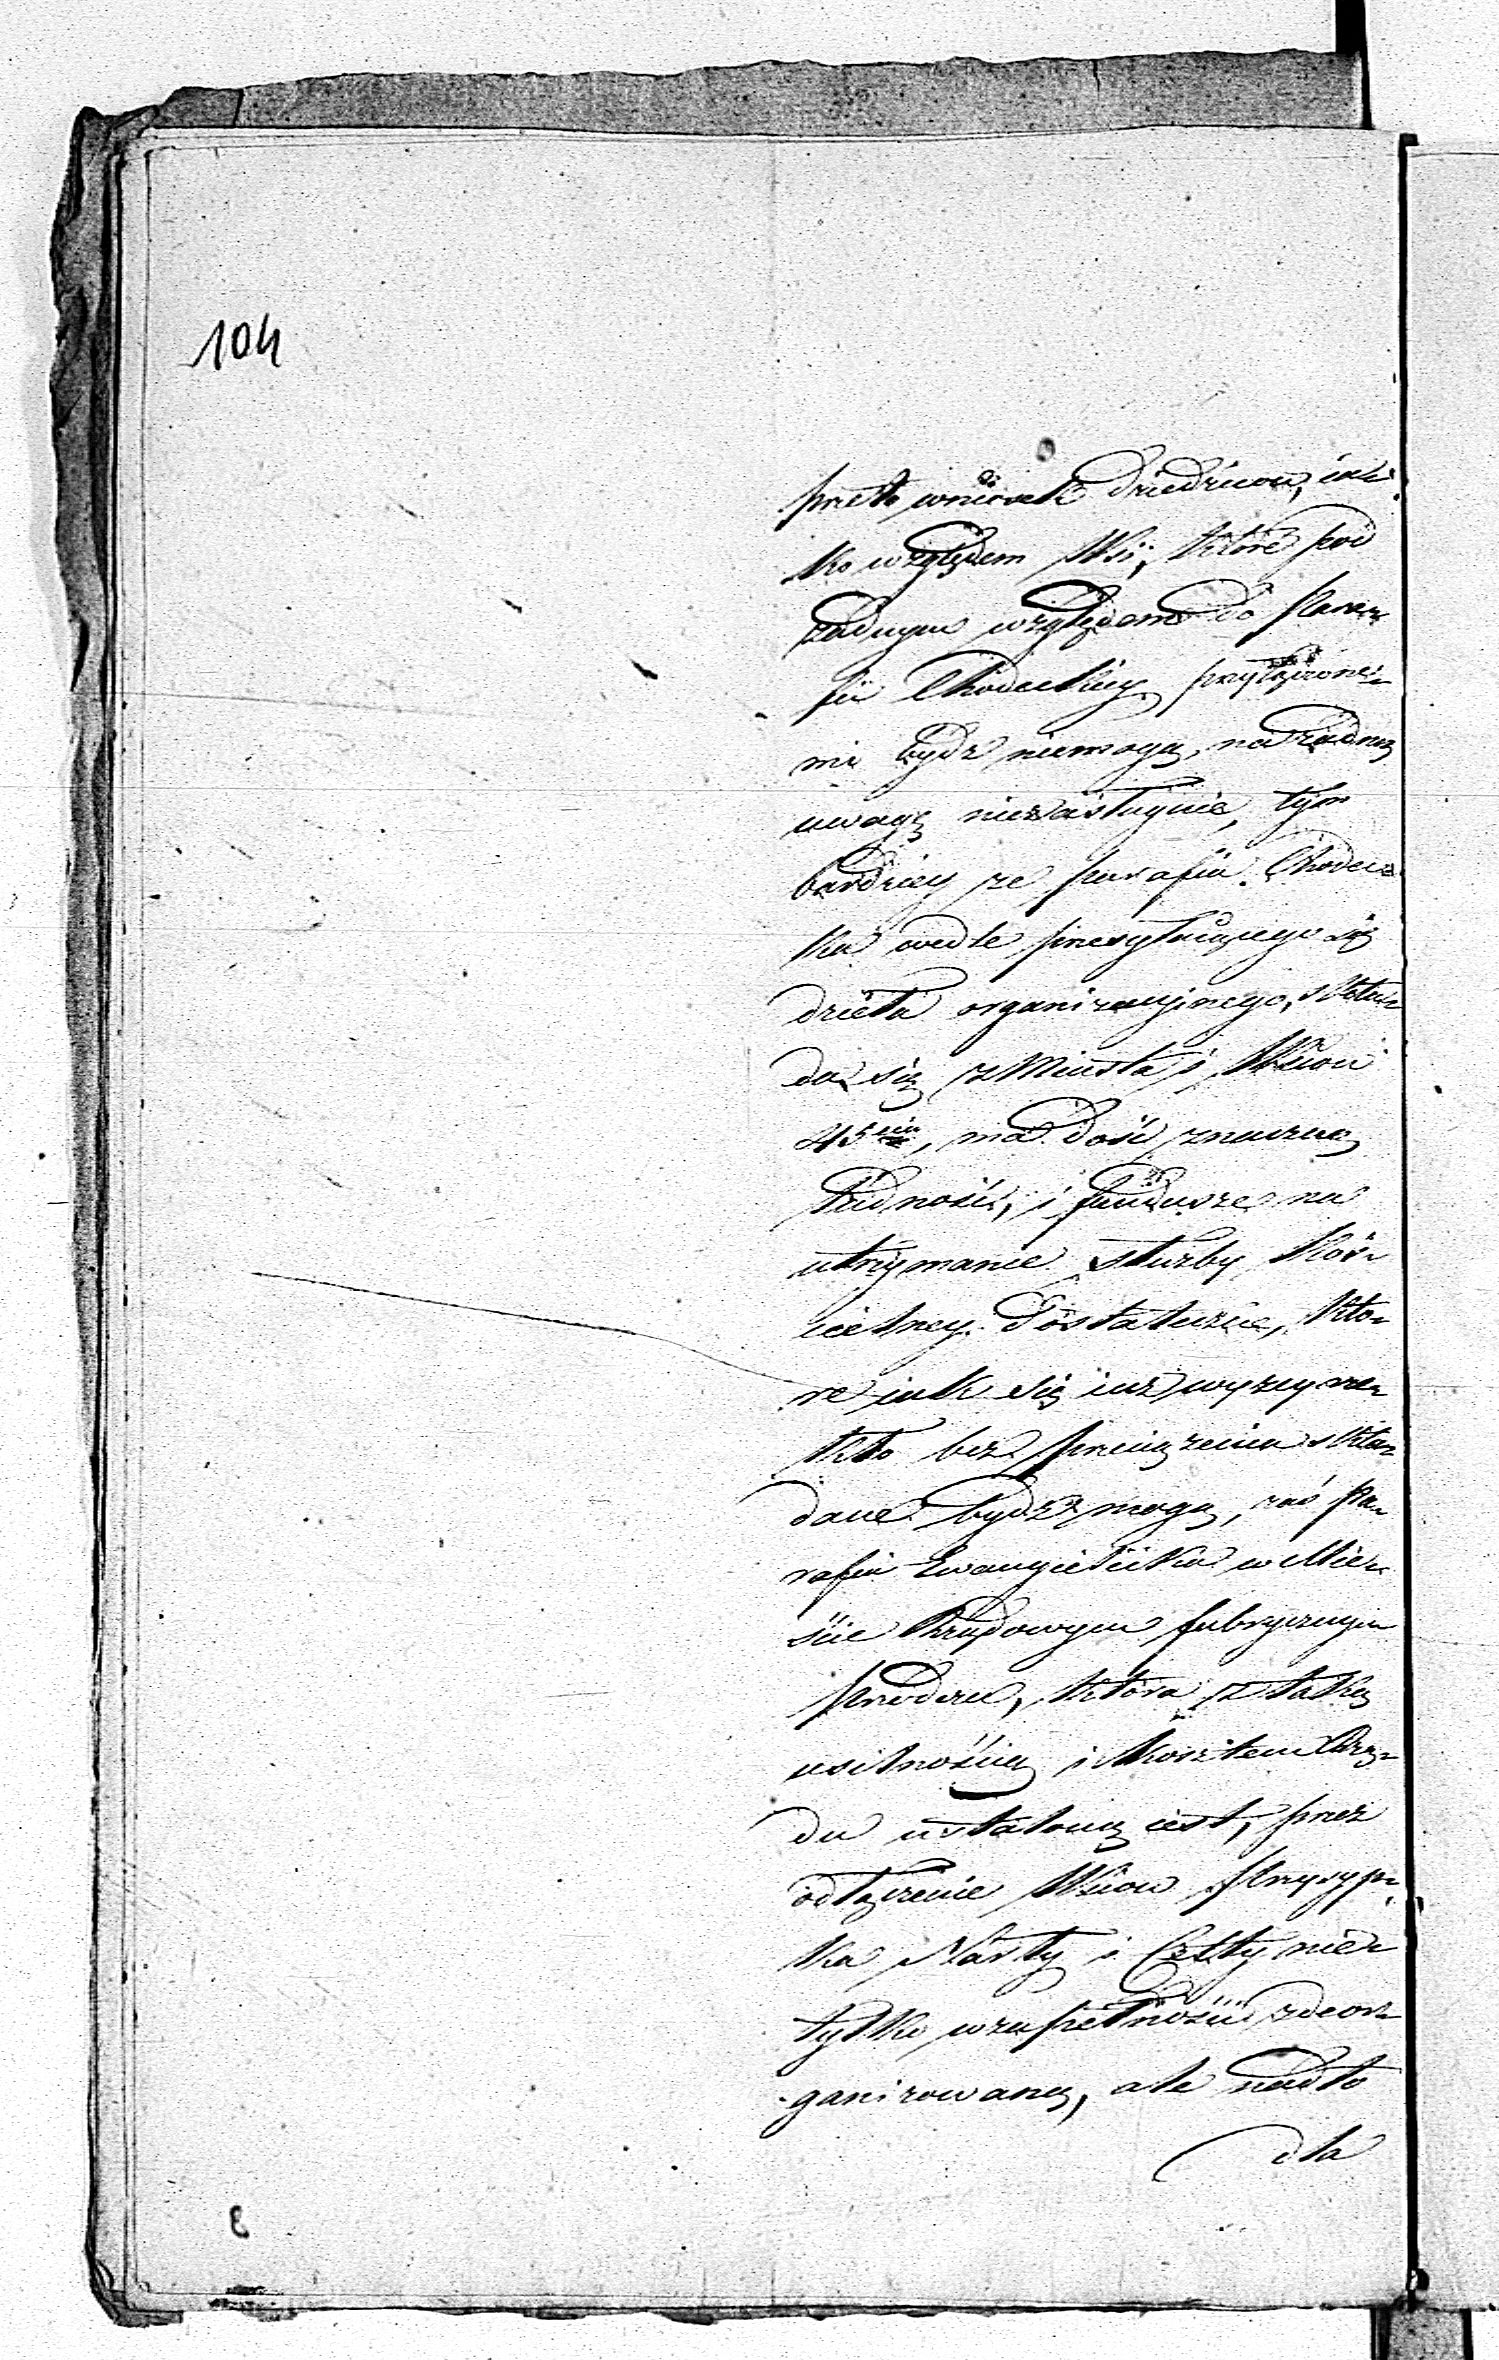 104
przeto wniosek Dziedziców, iak
ko względem Wsi, które pod
żadnym względem do Para-
fii Chodeckiey przyłączone-
mi bydź niemogą, na żadną
uwagę niezasługuie, tym
bardziey ze parafia Chodec-
ka wedle przesyłaiącego się
dzieła organizacyjnego, skła-
da się z Miasta i Wsiow
45ciu, ma dość znaczną
ludność, i fundusze na
utrzymanie służby Koś-
cielney dostateczne, któ-
re iak się iuż wyzey rze-
kło bez przeciązenia skła-
dane bydź mogą, zaś Pa-
rafia Ewangielicka w Mie-
ście Rządowym fabrycznym
Przedczu, która z taką
usilnością i kosztem Rzą-
du ustaloną iest, przez
odłączenie Wsiow Przysyp-
ka Narty i Cetty nie-
tylko wzupełności zdeor-
ganizowaną, ale nadto
dla